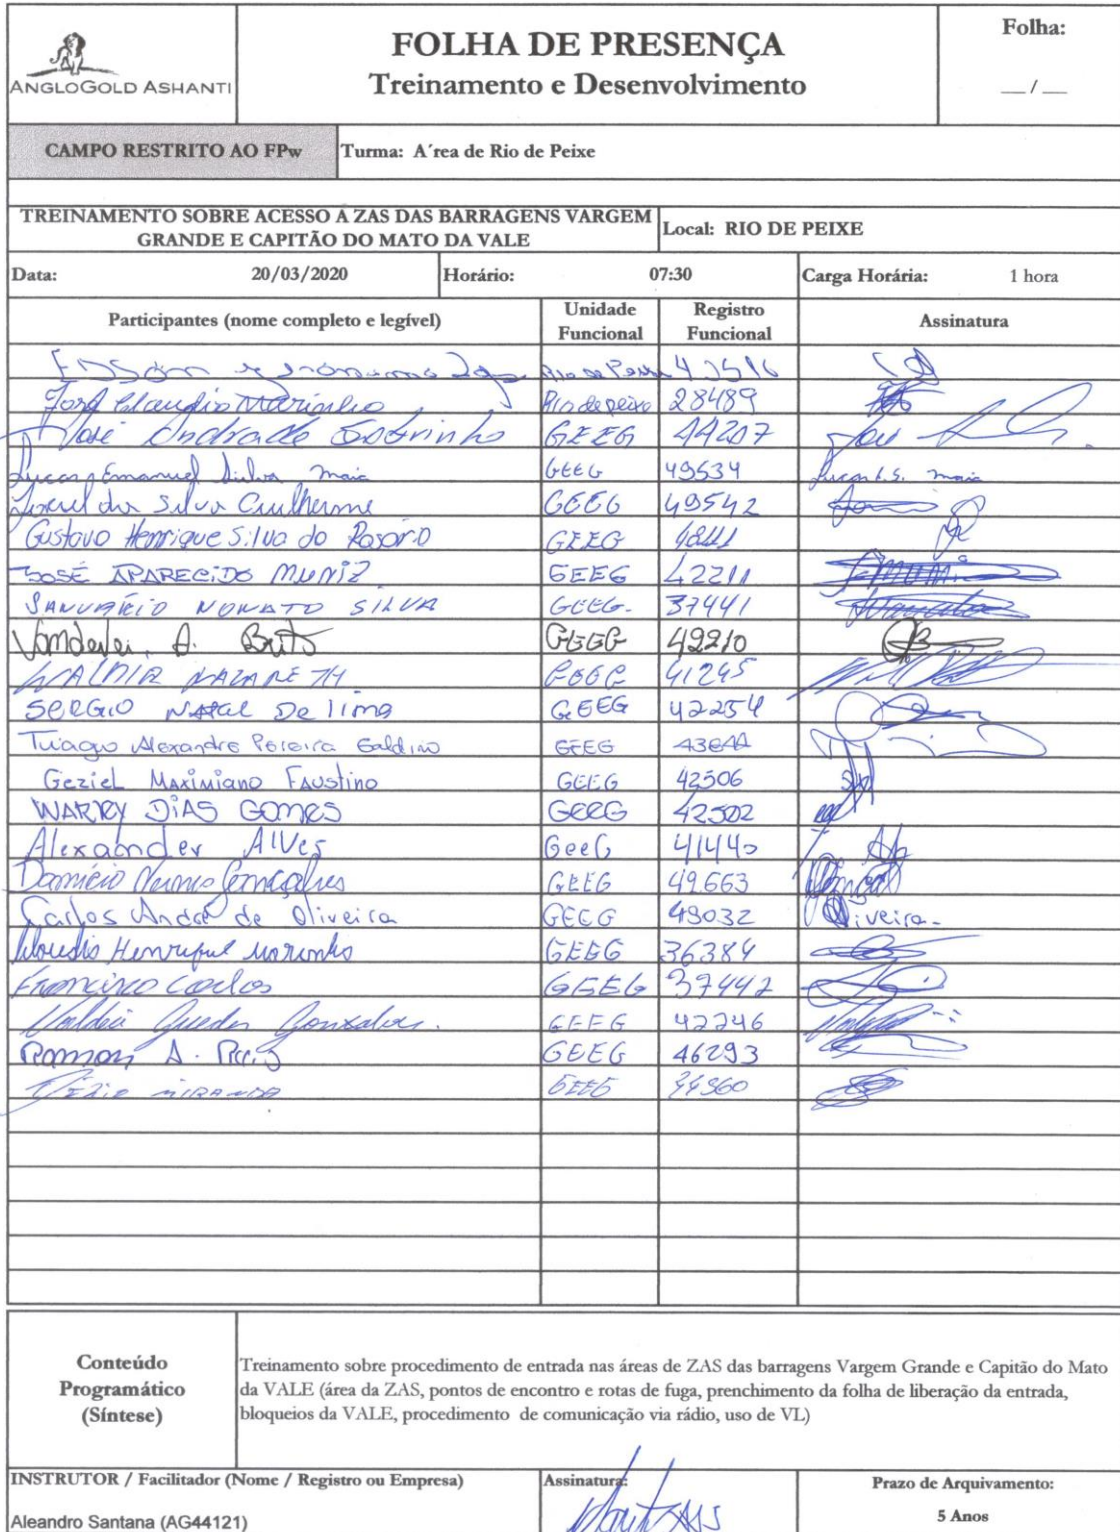 ANGLOGOLD ASHANTI
FOLHA DE PRESENÇA
Treinamento e Desenvolvimento
Folha:
__ / __
CAMPO RESTRITO AO FPw
Turma: A´rea de Rio de Peixe
TREINAMENTO SOBRE ACESSO A ZAS DAS BARRAGENS VARGEM
GRANDE E CAPITÃO DO MATO DA VALE
Local: RIO DE PEIXE
Data: 20/03/2020 Horário: 07:30 Carga Horária: 1 hora
Participantes (nome completo e legível) Unidade Funcional Registro Funcional Assinatura
Rio de Peixe
José Claudio Marinho Rio de peixe 28489
José Andrade Sobrinho GEEG 44207
Lucas Emanuel Silva Maia GEEG 49534 Lucas E.S. Maia
da Silva Guilherme GEEG 49542
Gustavo Henrique Silva do Rosário GEEG
JOSÉ APARECIDO MUNIZ GEEG 42211
JANUÁRIO NONATO SILVA GEEG. 37441
Vanderlei. A. Brito GEEG 42210
WALDIR NAZARETH 41245
SERGIO NATAL De lima GEEG 42254
Tiago Alexandre Pereira Galdino GEEG
Geziel Maximiano Faustino GEEG 42506
WARLEY DIAS GOMES GeeG 42502
Alexander Alves GeeG 41440
Gonçalves GEEG 49.663
Carlos André de Oliveira GEEG 49032 Oliveira-
Claudio Henrique Marinho GEEG 36384
Francisco Carlos GEEG 37442
Valdeir Guedes Gonzalves. GEEG 42246
Ramon A. Reis GEEG 46293
MIRANDA GEEG
Conteúdo
Programático
(Síntese)
Treinamento sobre procedimento de entrada nas áreas de ZAS das barragens Vargem Grande e Capitão do Mato
da VALE (área da ZAS, pontos de encontro e rotas de fuga, prenchimento da folha de liberação da entrada,
bloqueios da VALE, procedimento de comunicação via rádio, uso de VL)
INSTRUTOR / Facilitador (Nome / Registro ou Empresa) Assinatura: Prazo de Arquivamento:
Aleandro Santana (AG44121) 5 Anos